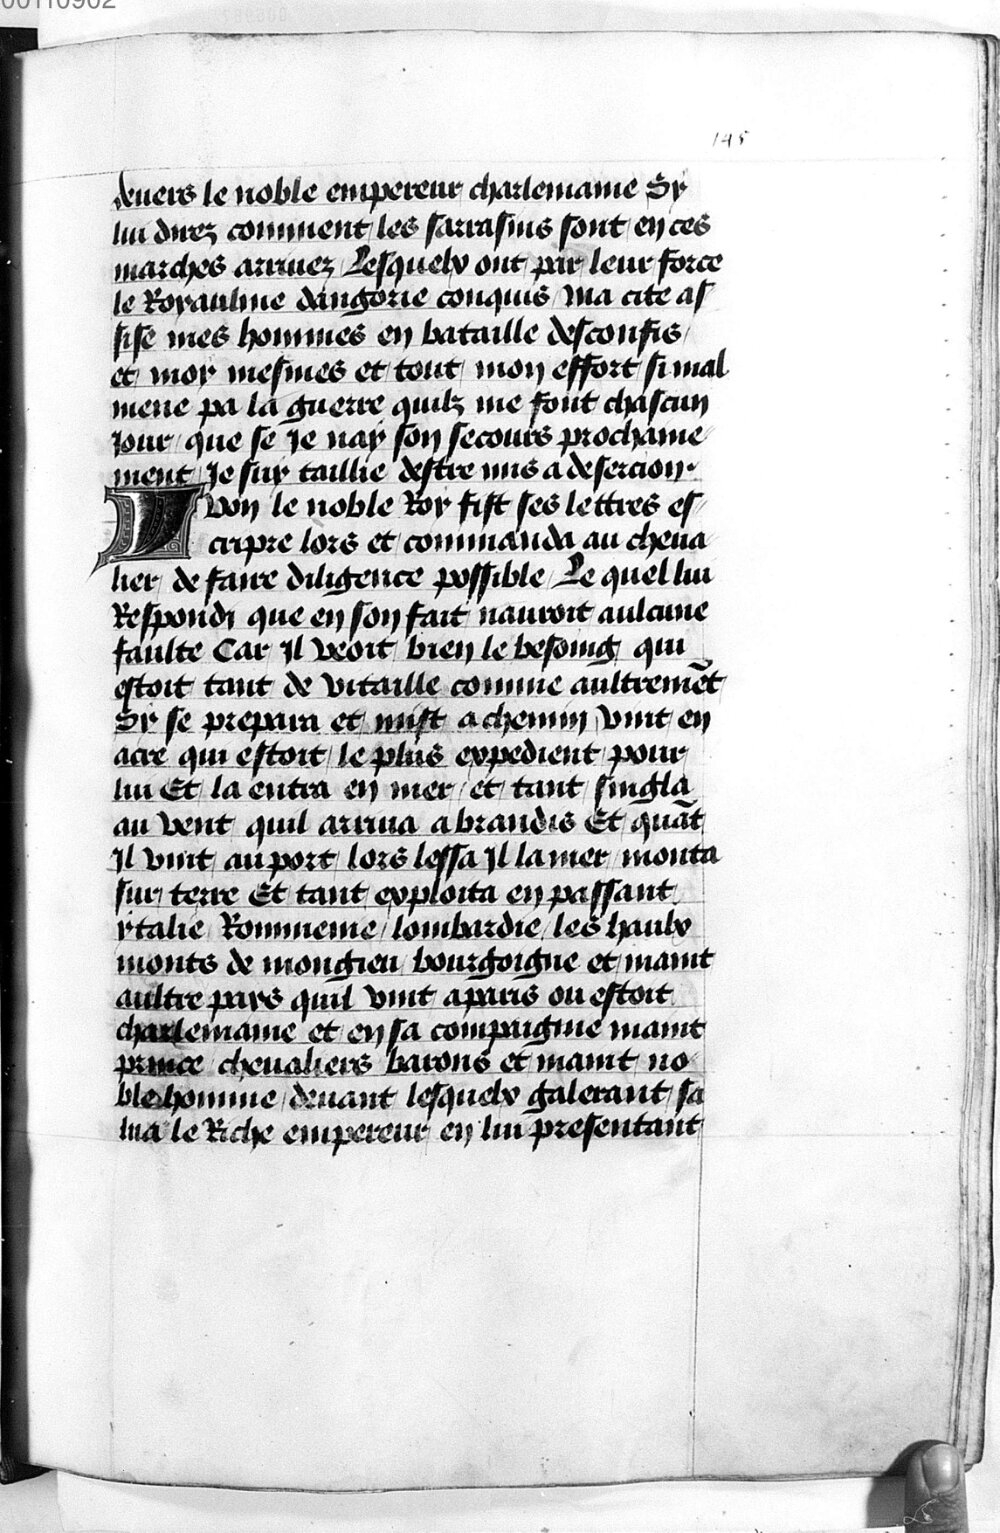 00110902
145
deuers le noble empereur charlemaine Sy
lui direz comment les sarrasins sont en ces
marches arriuez Lesquelx ont par leur force
le Royaulme dangorie conquis Ma cite as
sise mes hommes en bataille desconfis
et moy mesmes et tout mon effort si mal
mene pa la guerre quilz me font chascun
Jour que se Je nay son secours prochaine
ment Je suy taillie destre mis a desercion
Yuon le noble Roy fist ses lettres es
cripre lors et commanda au cheua
lier de faire diligence possible Le quel lui
Respondi que en son fait nauroit aulcune
faulte Car Il veoit bien le besoing qui
estoit tant de vitaille comme aultremẽt
Sy se prepara et mist a chemin vint en
acre qui estoit le plus expedient pour
lui Et la entra en mer et tant singla
au vent quil arriua a brandis Et quãt
Il vint au port lors lessa Il la mer monta
sur terre Et tant exploita en passant
ytalie Rommenie lombardie les haulx
monts de mongieu bourgoigne et maint
aultre pays quil vint a paris ou estoit
charlemaine et en sa compaignie maint
prince cheualiers barons et maint no
ble homme deuant lesquelx galerant sa
lua le Riche empereur en lui presentant